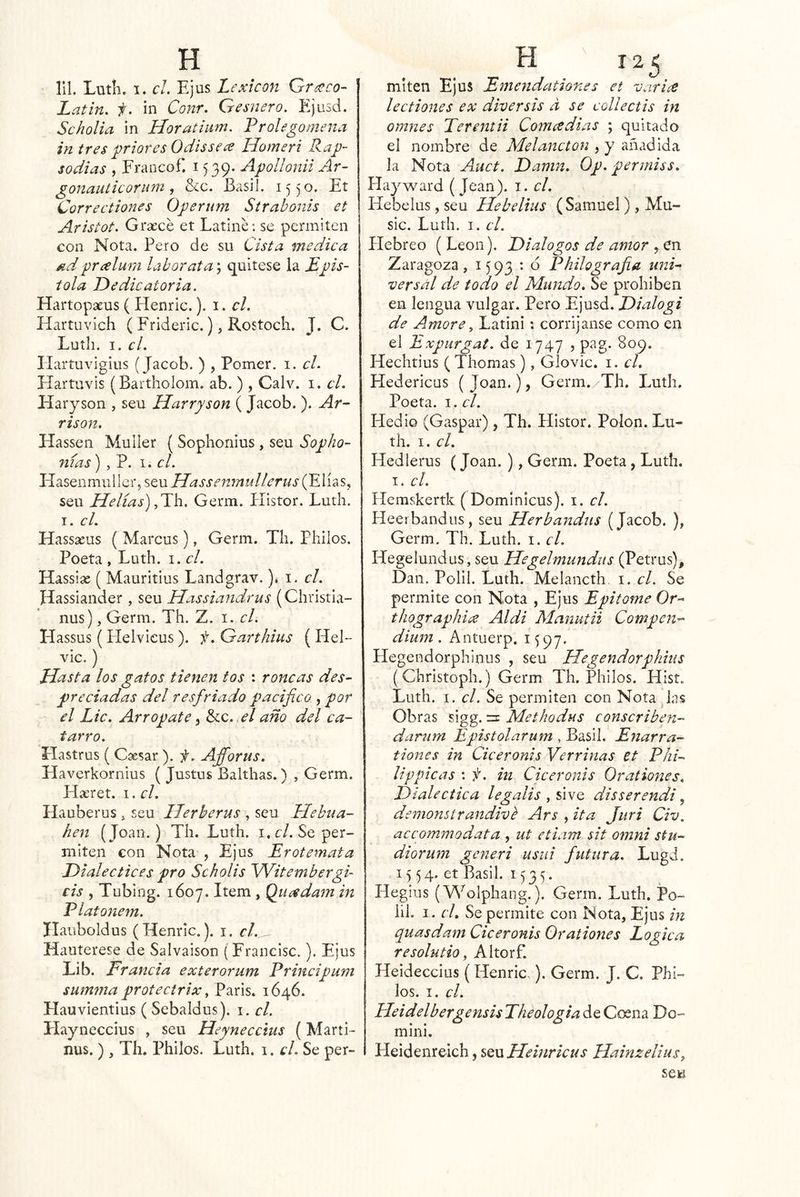 H
lil. Luth. 1. cl. Ejus Lexicon Græco-
Latin. ℣. in Conr. Gesnero. Ejusd.
Scholia in Horatium. Prolegomena
in tres priores Odisseæ Homeri Rap-
sodias , Francof. 1539. Apollonii Ar-
gonauticorum , &c. Basil. 1550. Et
Correctiones Operum Strabonis et
Aristot. Græcè et Latinè: se permiten
con Nota. Pero de su Cista medica
ad prælum laborata; quitese la Epis-
tola Dedicatoria.
Hartopæus ( Henric. ). 1. cl.
Hartuvich ( Frideric. ) , Rostoch. J. C.
Luth. 1. cl.
Hartuvigius ( Jacob. ) , Pomer. 1. cl.
Hartuvis ( Bartholom. ab. ) , Calv. 1. cl.
Haryson , seu Harryson ( Jacob. ). Ar-
rison.
Hassen Muller ( Sophonius , seu Sopho-
nías ) , P. 1. cl.
Hasenmuller, seu Hassenmullerus (Elías,
seu Helías) , Th. Germ. Histor. Luth.
1. cl.
Hassæus ( Marcus ) , Germ. Th. Philos.
Poeta , Luth. 1. cl.
Hassiæ ( Mauritius Landgrav. ). 1. cl.
Hassiander , seu Hassiandrus ( Christia-
nus) , Germ. Th. Z. 1. cl.
Hassus ( Helvicus ). ℣. Garthius ( Hel-
vic. )
Hasta los gatos tienen tos : roncas des-
preciadas del resfriado pacifico , por
el Lic. Arropate , &c. el año del ca-
tarro.
Hastrus ( Cæsar ). ℣. Afforus.
Haverkornius ( Justus Balthas. ) , Germ.
Hæret. 1. cl.
Hauberus , seu Herberus , seu Hebua-
hen ( Joan. ) Th. Luth. 1. cl. Se per-
miten con Nota , Ejus Erotemata
Dialectices pro Scholis Witembergi-
cis , Tubing. 1607. Item , Quædam in
Platonem.
Hauboldus ( Henric. ). 1. cl.
Hauterese de Salvaison ( Francisc. ). Ejus
Lib. Francia exterorum Principum
summa protectrix , Paris. 1646.
Hauvientius ( Sebaldus ). 1. cl.
Hayneccius , seu Heyneccius ( Marti-
nus. ) , Th. Philos. Luth. 1. cl. Se per-
H 125
miten Ejus Emendationes et variæ
lectiones ex diversis à se collectis in
omnes Terentii Comœdias ; quitado
el nombre de Melancton , y añadida
la Nota Auct. Damn. Op. permiss.
Hayward ( Jean). 1. cl.
Hebelus , seu Hebelius ( Samuel ) , Mu-
sic. Luth. 1. cl.
Hebreo ( Leon ). Dialogos de amor , en
Zaragoza , 1593 : ó Philografia uni-
versal de todo el Mundo. Se prohiben
en lengua vulgar. Pero Ejusd. Dialogi
de Amore , Latini : corrijanse como en
el Expurgat. de 1747 , pag. 809.
Hechtius ( Thomas ) , Glovic. 1. cl.
Hedericus ( Joan. ) , Germ. Th. Luth.
Poeta. 1. cl.
Hedio (Gaspar) , Th. Histor. Polon. Lu-
th. 1. cl.
Hedlerus ( Joan. ) , Germ. Poeta , Luth.
1. cl.
Hemskertk ( Dominicus). 1. cl.
Heerbandus , seu Herbandus ( Jacob. ),
Germ. Th. Luth. 1. cl.
Hegelundus, seu Hegelmundus (Petrus),
Dan. Polil. Luth. Melancth 1. cl. Se
permite con Nota , Ejus Epitome Or-
thographiæ Aldi Manutii Compen-
dium. Antuerp. 1597.
Hegendorphinus , seu Hegendorphius
( Christoph. ) Germ Th. Philos. Hist.
Luth. 1. cl. Se permiten con Nota las
Obras sigg. = Methodus conscriben-
darum Epistolarum , Basil. Enarra-
tiones in Ciceronis Verrinas et Phi-
lippicas : ℣. in Ciceronis Orationes.
Dialectica legalis , sive disserendi ,
demonstrandivè Ars , ita Juri Civ.
accommodata , ut etiam sit omni stu-
diorum generi usui futura. Lugd.
1554. et Basil. 1535.
Hegius ( Wolphang. ). Germ. Luth. Po-
lil. 1. cl. Se permite con Nota, Ejus in
quasdam Ciceronis Orationes Logica
resolutio , Altorf.
Heideccius ( Henric. ). Germ. J. C. Phi-
los. 1. cl.
Heidelbergensis Theologia de Cœna Do-
mini.
Heidenreich , seu Heinricus Hainzelius,
seu